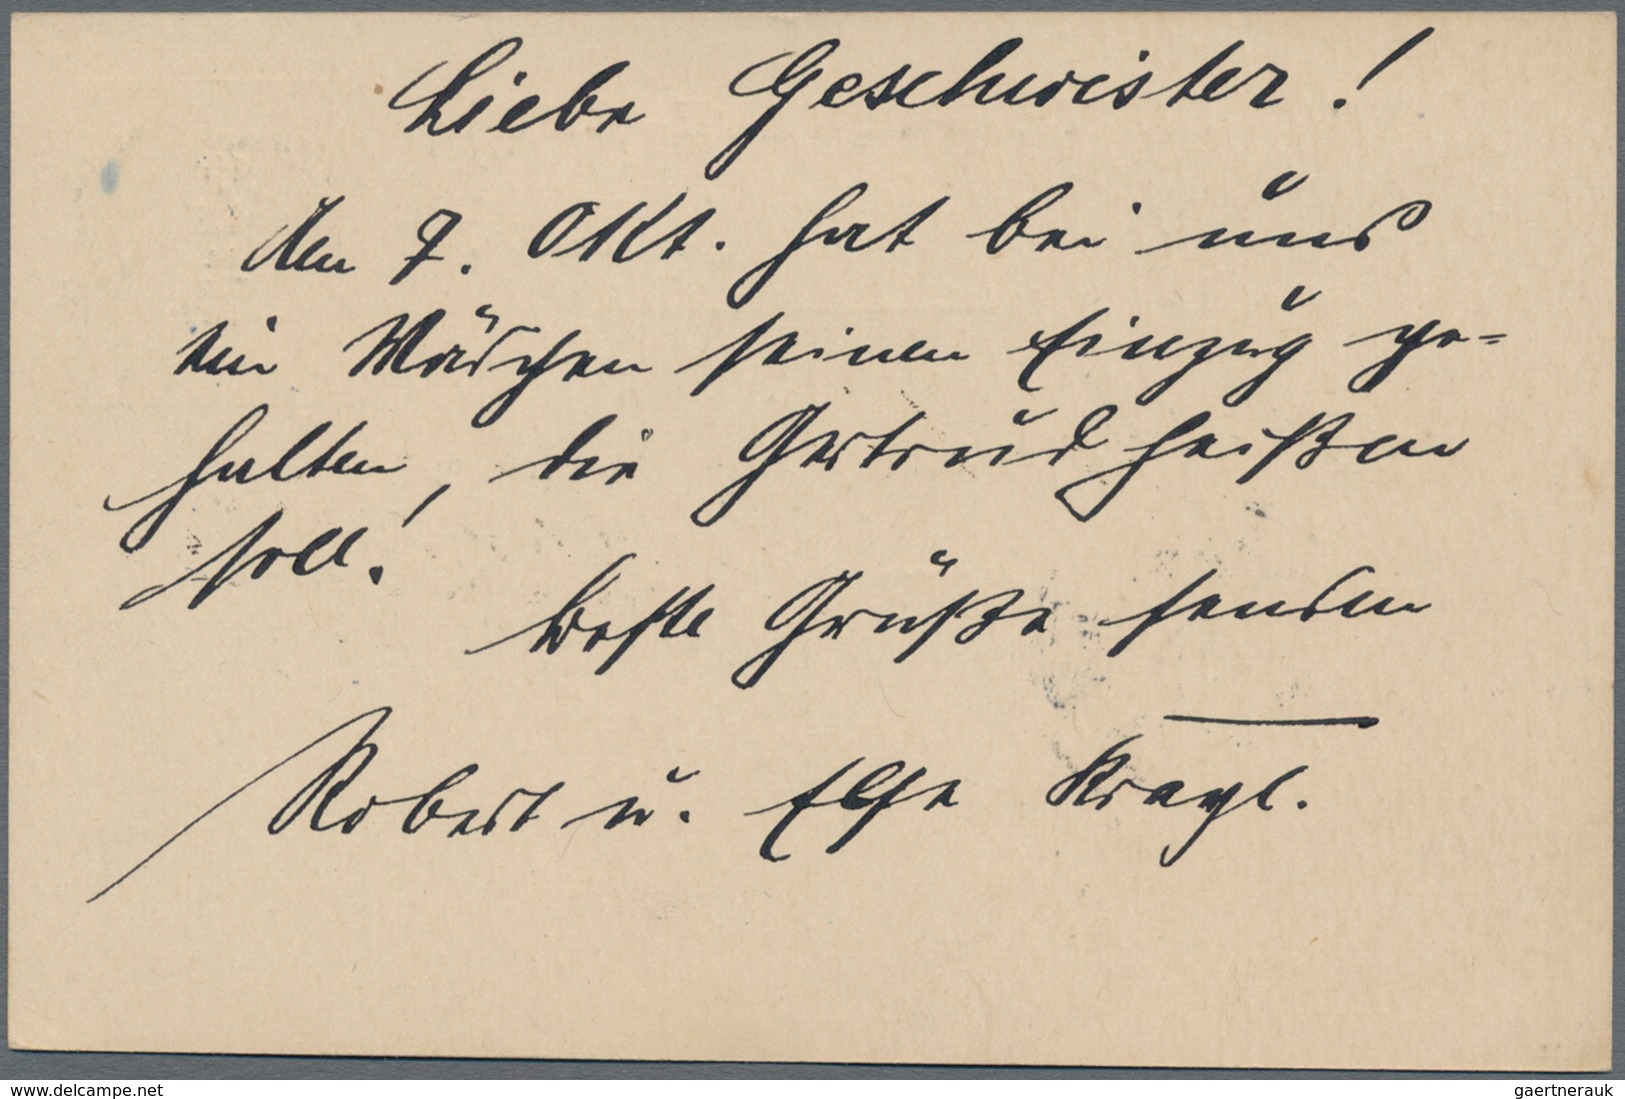 Liebe Geschwister!
Den 7. Okt. hat bei uns
ein Mädchen seinen Einzug ge-
halten, die Gertrud heißen
soll!
Beste Grüße senden
Robert u. Else
www.delcampe.net
gaertnerauk